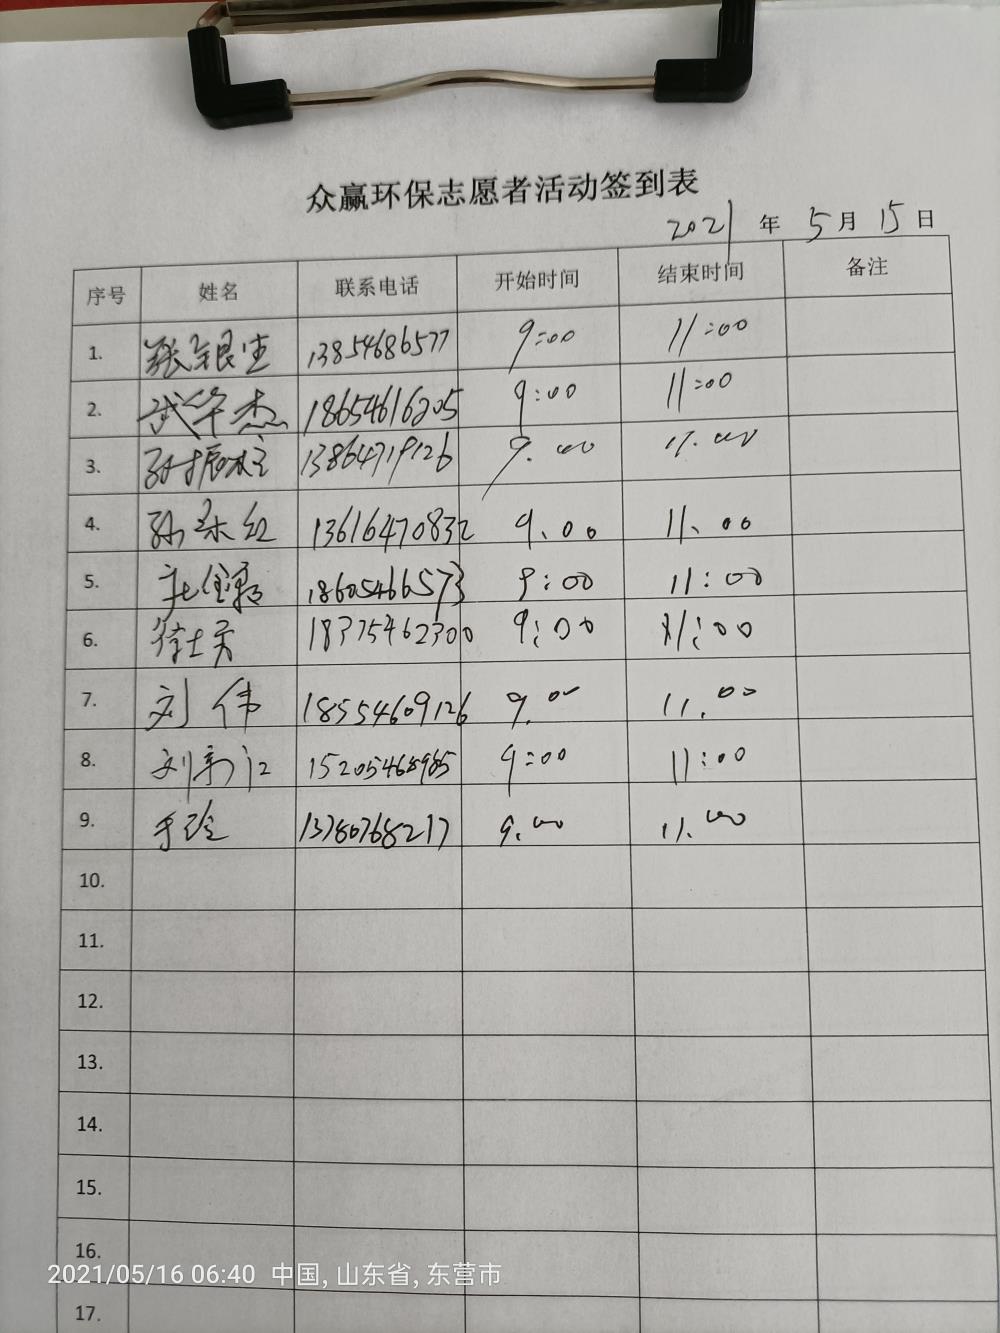 众赢环保志愿者活动签到表
2021年 5月 15日
序号 姓名 联系电话 开始时间 结束时间 备注
1. 张银生 13854686577 9:00 11:00
2. 武华杰 18654616205 9:00 11:00
3. 13864719126 9.00 11.00
4. 13616470832 9.00 11.00
5. 18605466573 9:00 11:00
6. 18375462300 9:00 11:00
7. 刘伟 18554609126 9.00 11.00
8. 15205468985 9:00 11:00
9. 于玲 13780768217 9.00 11.00
10.
11.
12.
13.
14.
15.
16.
2021/05/16 06:40 中国, 山东省, 东营市
17.